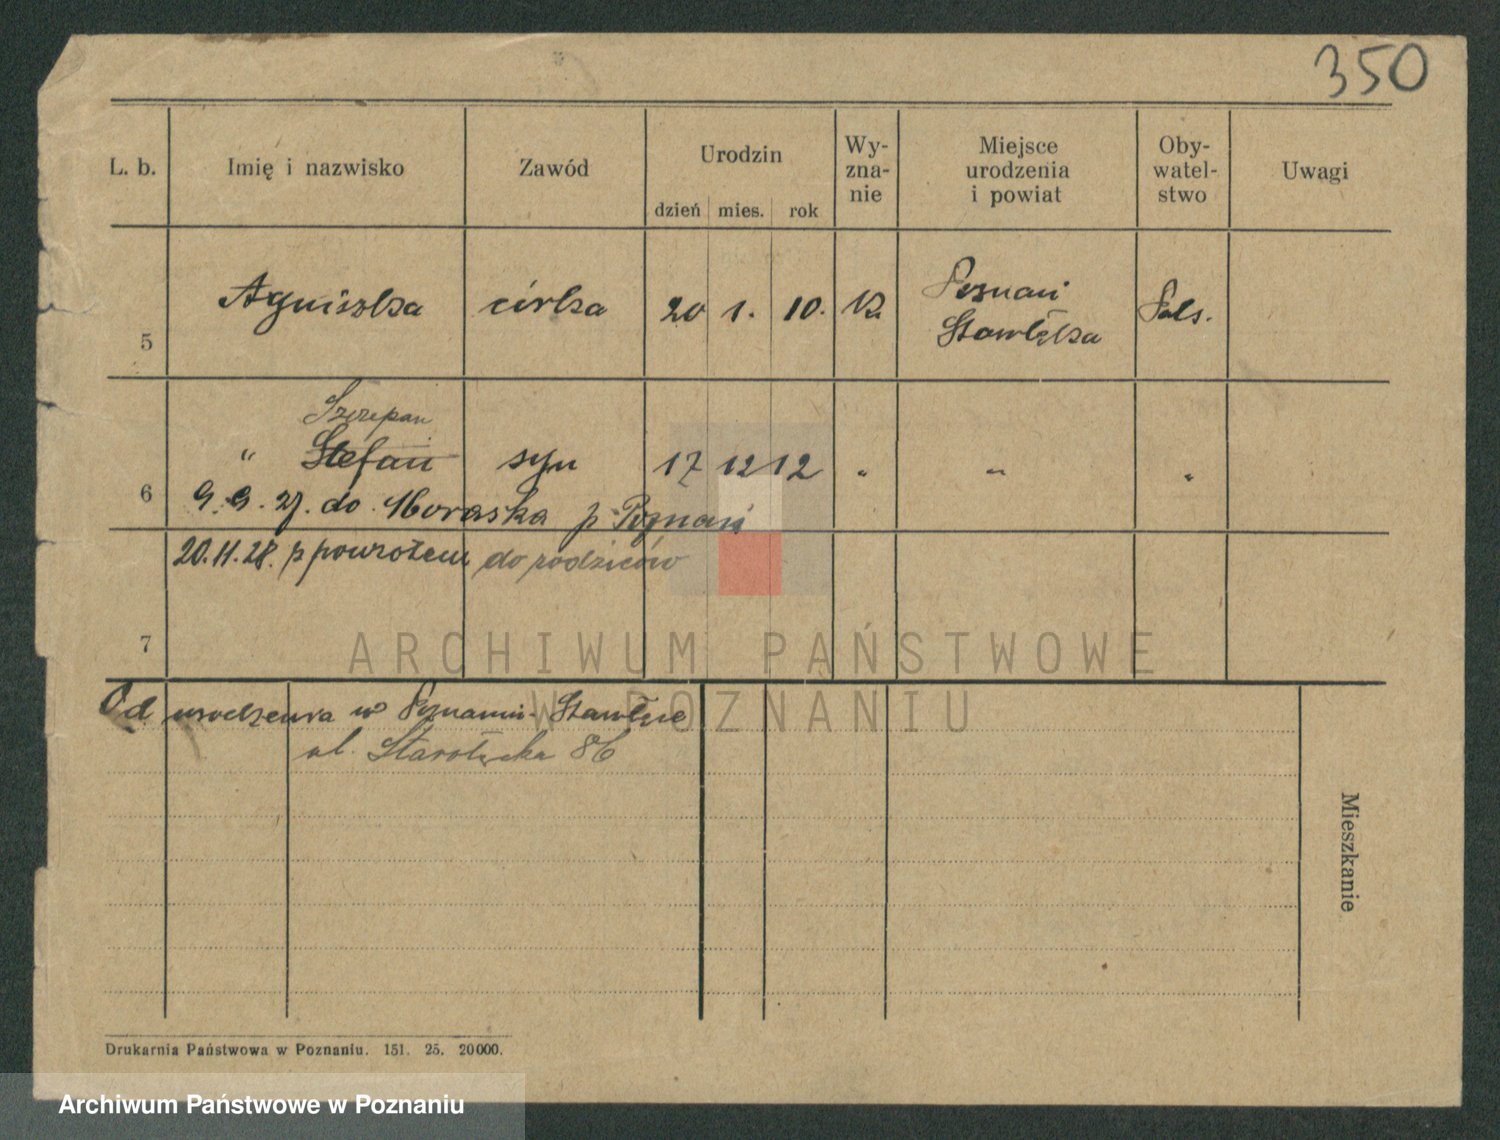 350
L. b. Imię i nazwisko Zawód Urodzin dzień mies. rok Wy-zna-nie Miejsce urodzenia i powiat Oby-watel-stwo Uwagi
5 Agniszka córka 20 1. 10. Poznań Starołęka Pols.
Szczepan
6 " Stefan syn 17 12 12 " " "
9. 9. 27. do Moraska p. Poznań
20.11.28. z powrotem do rodziców
7
Od urodzenia w Poznaniu-Starołęce
ul. Starołęcka 86
Mieszkanie
Drukarnia Państwowa w Poznaniu. 151. 25. 20000.
ARCHIWUM PAŃSTWOWE
W POZNANIU
Archiwum Państwowe w Poznaniu